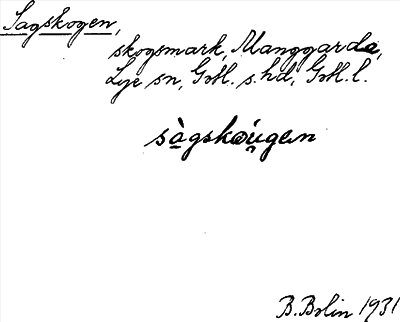 Sagskogen,
skogsmark, Manggarda,
Lye sn, Gotl. s. hd, Gotl. l.
sà̱gskǿu̯gen
B. Bolin 1931